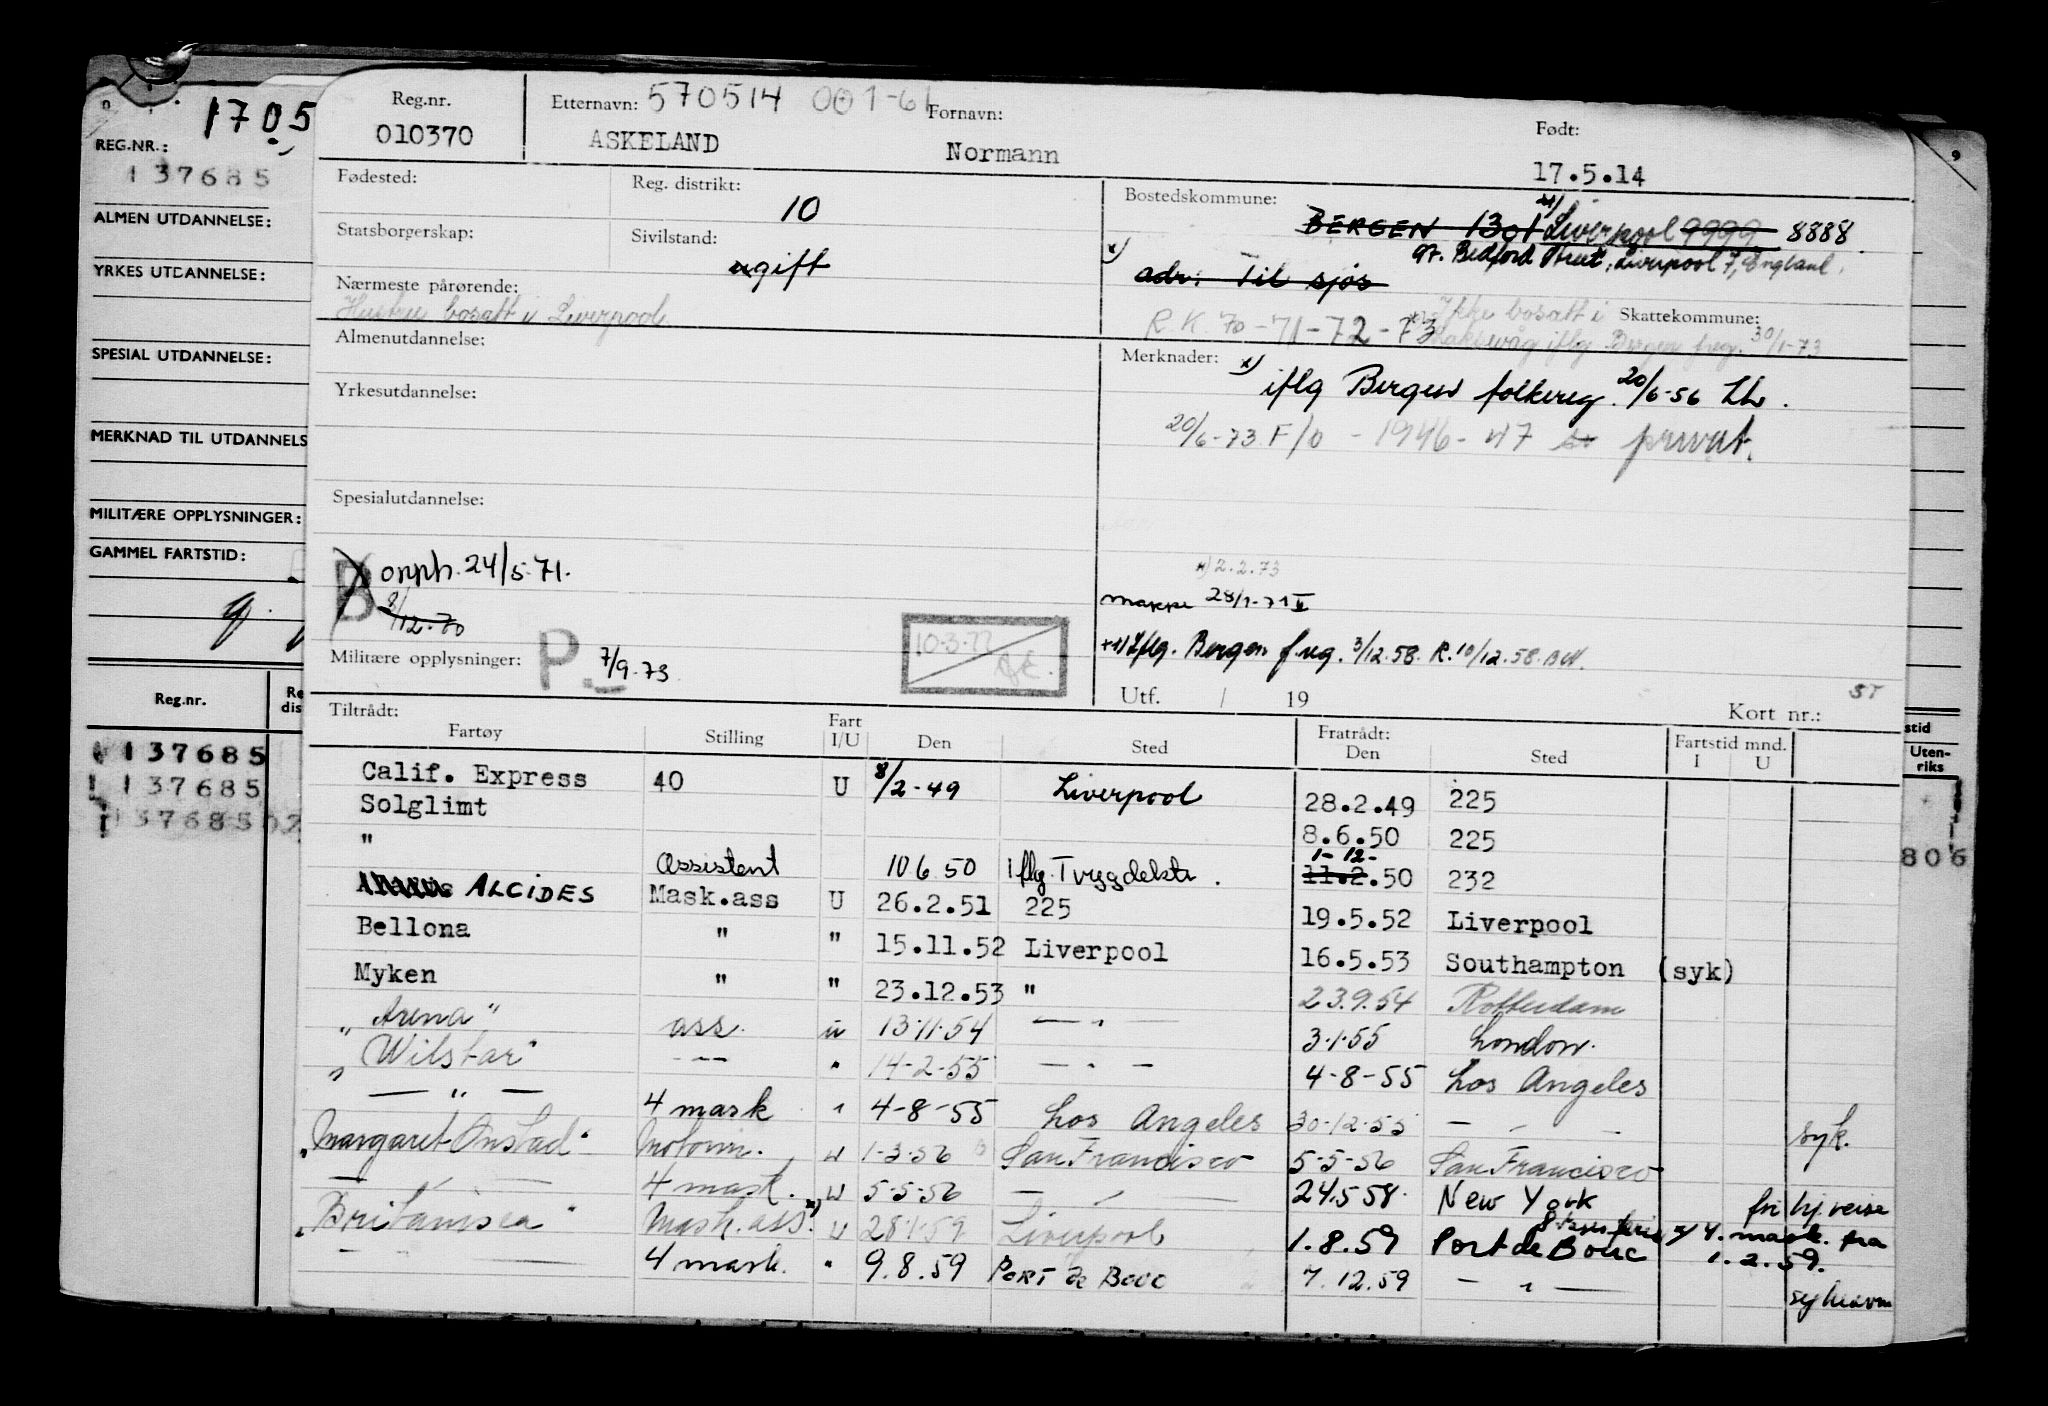 1705
REG.NR.:
137685
ALMEN UTDANNELSE:
YRKES UTDANNELSE:
SPECIAL UTDANNELSE:
MERKNAD TIL UTDANNELS
MILITÆRE OPPLYSNINGER:
GAMMEL FARTSTID:
Reg.nr. Re
dis
137685
137685
137685
Reg.nr. 010370
Etternavn: 570514 001-61
ASKELAND
Fornavn: Normann
Født: 17.5.14
Fødested:
Reg. distrikt: 10
Statsborgerskap:
Sivilstand: ugift
Nærmeste pårørende:
Hustru bosatt i Liverpool
Bostedskommune:
BERGEN 1301 Liverpool 9999 8888.
97. Bedford Street, Liverpool 7, England.
x) adr: Til sjøs
R.K. 70-71-72-73
Ikke bosatt i
Laksevåg iflg Bergen freg. 30/1-73
Skattekommune:
Almenutdannelse:
Yrkesutdannelse:
Spesialutdannelse:
Merknader: x)
iflg Bergen folkereg. 20/6-56
20/6-73 F/o - 1946-47 privat.
B opph. 24/5.71.
8/12-70
Militære opplysninger: P. 7/9.73
10.3.77
x) 2.2.73
mappe 28/1-71
Iflg. Bergen freg. 3/12.58. R. 10/12.58.
Utf. / 19
ST
Kort nr.:
Tiltrådt:
Fartøy Stilling Fart I/U Den Sted Fratrådt: Den Sted Fartstid mnd. I U
Calif. Express 40 U 8/2-49 Liverpool 28.2.49 225
Solglimt 8.6.50 225
" Assistent 10 6 50 iflg. Trygdekto. 11.2.50 1-12- 232
ALCIDES Mask.ass U 26.2.51 225 19.5.52 Liverpool
Bellona " " 15.11.52 Liverpool 16.5.53 Southampton (syk)
Myken " " 23.12.53 " 23.9.54 Rotterdam
" Arena" ass. u 13.11.54 — " — 3.1.55 London.
" Wilstar" — " — " 14-2-55 — " — 4-8-55 Los Angeles
— " — 4 mask " 4-8-55 Los Angeles 30-12-55 — " — syk.
"Margaret Onstad" Motorm. u 1-3-56 San Francisco 5-5-56 San Francisco
— " — 4 mask. u 5-5-56 — " — 24.5.58. New York fri hj. reise
"Britannsea" Mask.ass. x) u 28.1.59 Liverpool 1.8.59 Port de Bouc x) 4. mask. fra
1.2.59.
— " — 4 mask. " 9.8.59 PORT de BOUC 7.12.59 — " —
stid
Uten-
riks
806